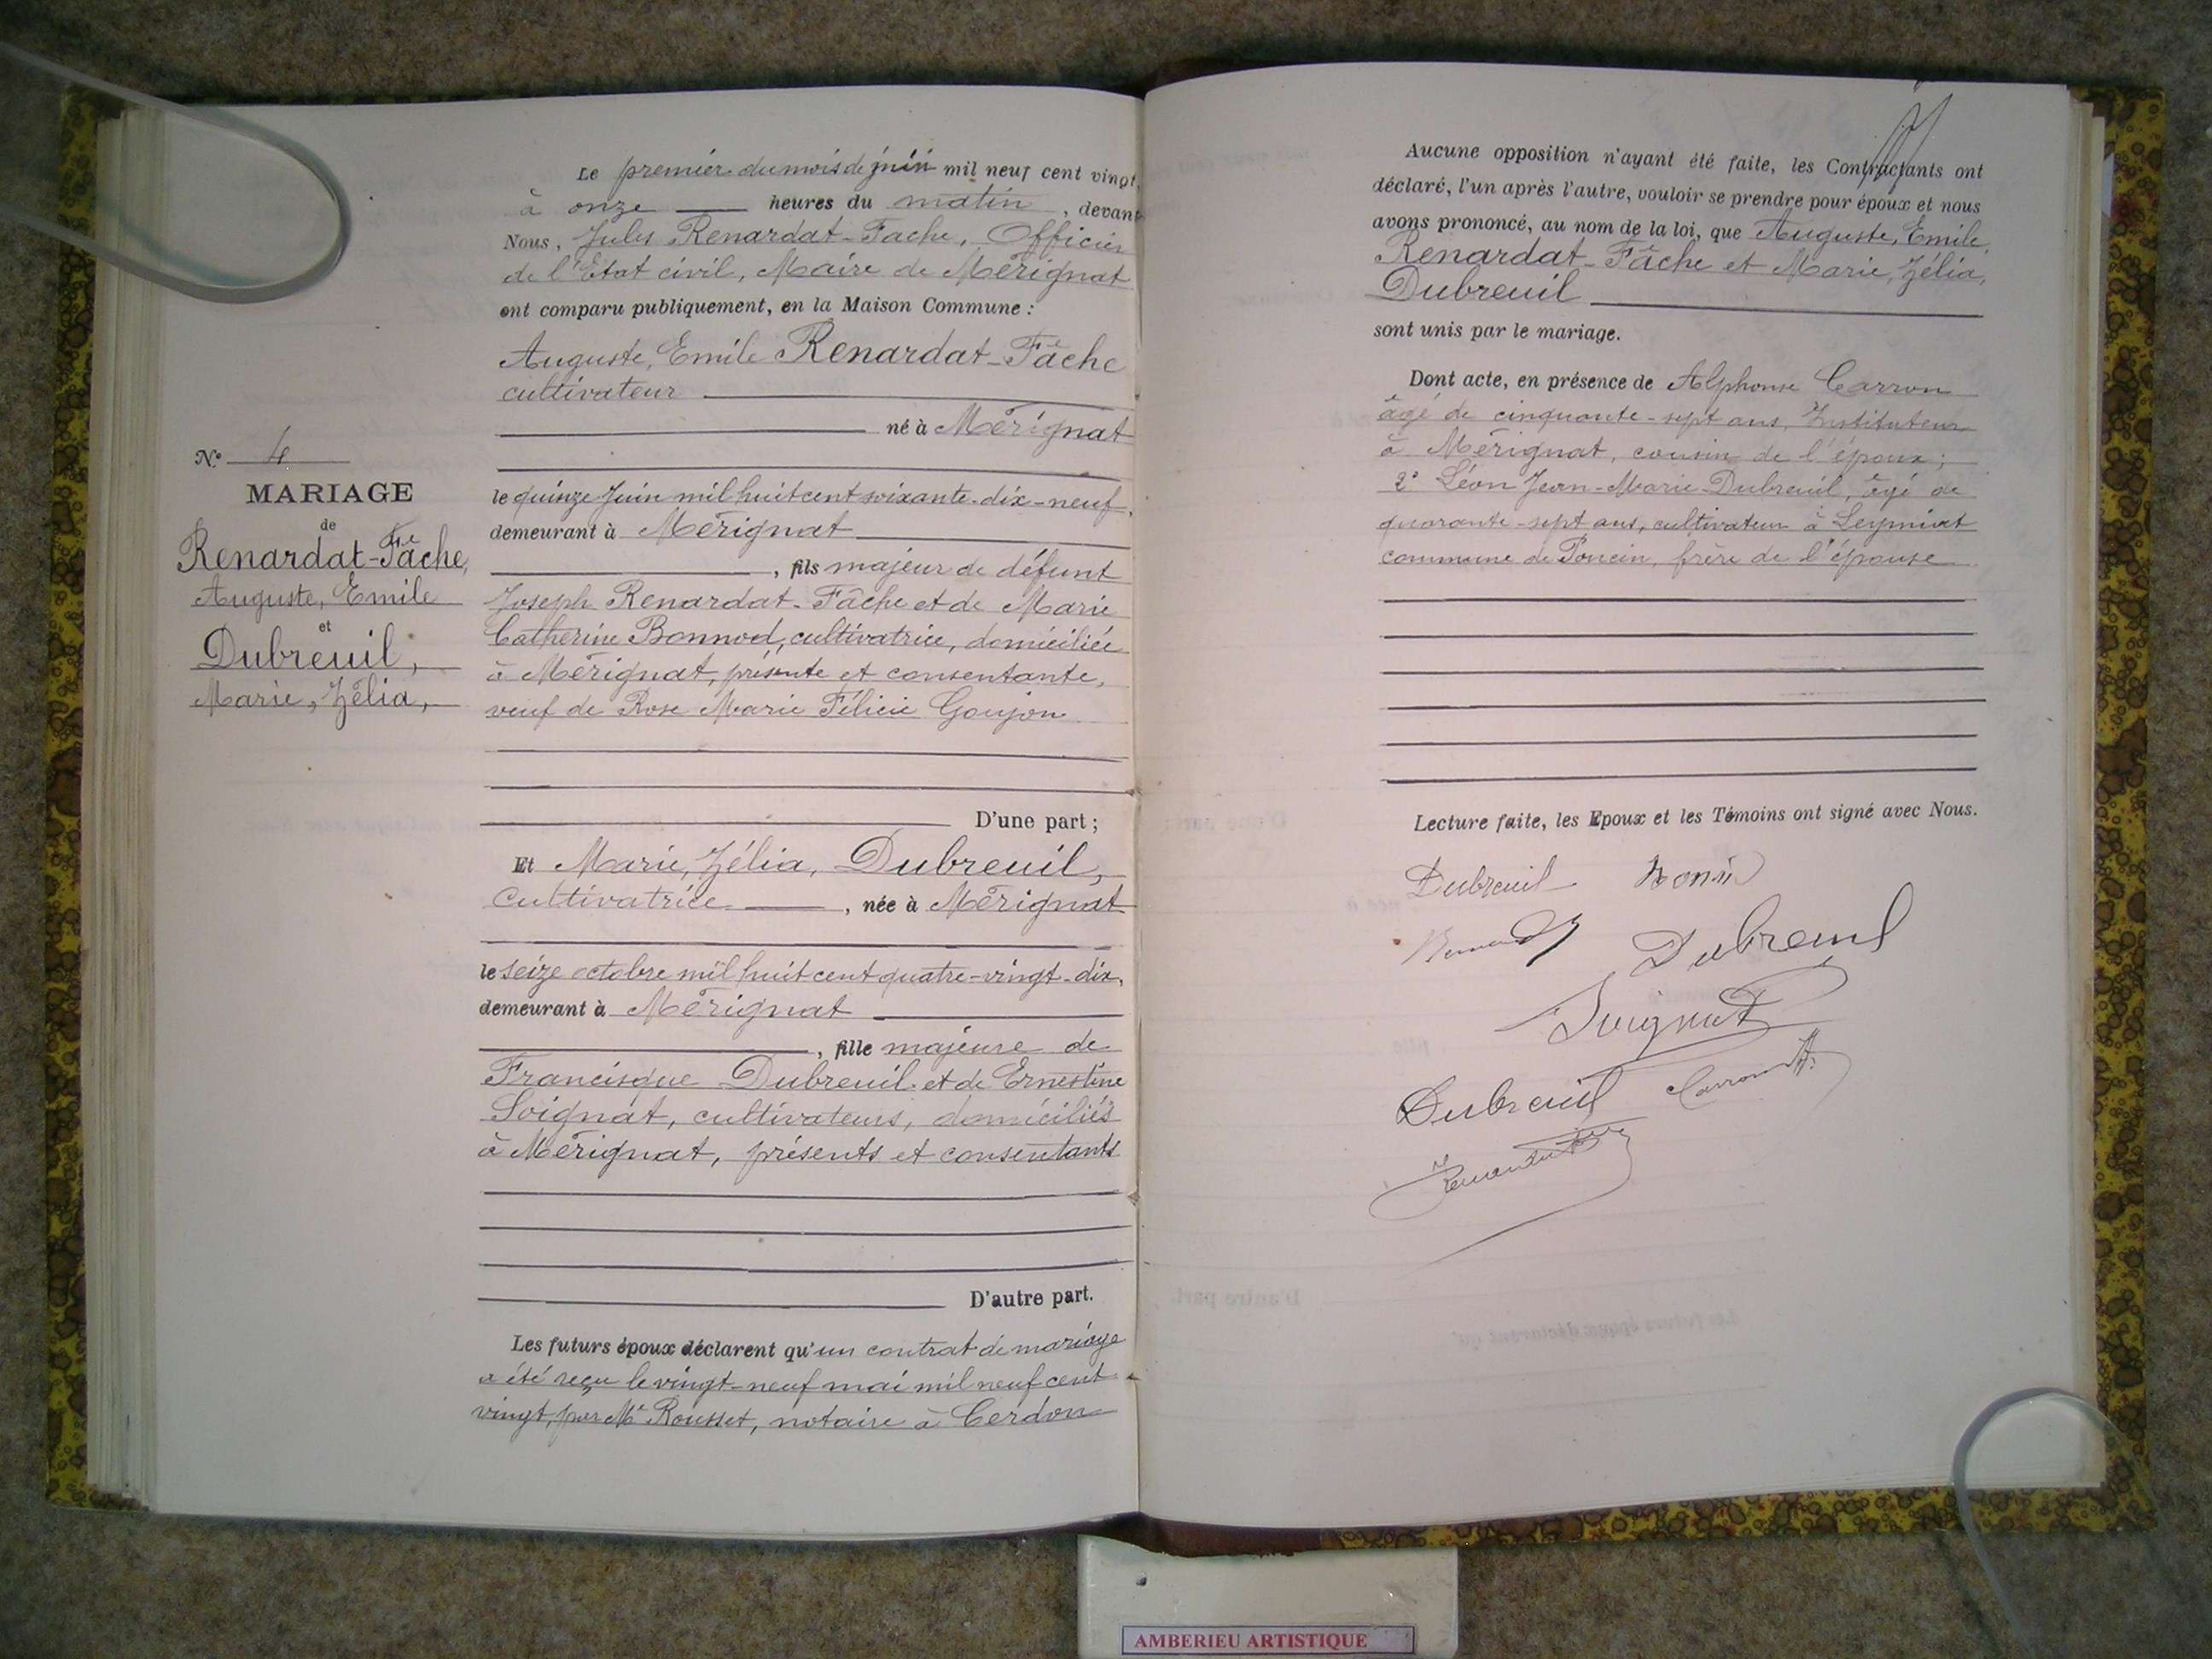 Le premier du mois de juin mil neuf cent vingt,
à onze heures du matin, devant
Nous, Jules Renardat-Fache, Officier
de l'Etat civil, Maire de Mérignat
ont comparu publiquement, en la Maison Commune :
Auguste, Emile Renardat-Fâche
cultivateur
né à Mérignat
le quinze Juin mil huit cent soixante-dix-neuf,
demeurant à Mérignat
, fils majeur de défunt
Joseph Renardat-Fâche et de Marie
Catherine Bonnod, cultivatrice, domiciliée
à Mérignat, présente et consentante,
veuf de Rose Marie Félicie Goujon
D'une part ;
Et Marie, Zélia, Dubreuil,
Cultivatrice, née à Mérignat
le seize octobre mil huit cent quatre-vingt-dix,
demeurant à Mérignat
, fille majeure de
Francisque Dubreuil et de Ernestine
Soignat, cultivateurs, domiciliés
à Mérignat, présents et consentants
D'autre part.
Les futurs époux déclarent qu'un contrat de mariage
a été reçu le vingt-neuf mai mil neuf cent
vingt, par Me Rousset, notaire à Cerdon
N° 4
MARIAGE
de
Renardat-Fâche,
Auguste, Emile
et
Dubreuil,
Marie, Zélia,
Aucune opposition n'ayant été faite, les Contractants ont
déclaré, l'un après l'autre, vouloir se prendre pour époux et nous
avons prononcé, au nom de la loi, que Auguste, Emile,
Renardat-Fâche et Marie, Zélia,
Dubreuil
sont unis par le mariage.
Dont acte, en présence de Alphonse Carron
âgé de cinquante-sept ans, Instituteur
à Mérignat, cousin de l'époux ;
2° Léon Jean-Marie Dubreuil, âgé de
quarante-sept ans, cultivateur à Leymiat
commune de Poncin, frère de l'épouse
Lecture faite, les Epoux et les Témoins ont signé avec Nous.
Dubreuil
Dubreuil
Soignat
Dubreuil Carron A.
AMBERIEU ARTISTIQUE